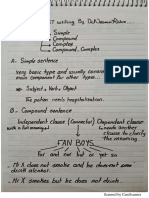 writing By Dr.
. Simple
. Compound
. Complex
. Compound, Complex
A. Simple sentence
very basic type and usually
main component for other types.
⇒ Subject + Verb + Object
The patien needs hospitalisation.
B. Compound sentence
Independent clause (Connector) Dependent clause
needs another
clause to clarify
the meaning
FAN BOYS
for and nor but or yet so
Mr X does not smoke and he
drunk alcohol.
Mr X smokes but he does not drunk.
Scanned by CamScanner